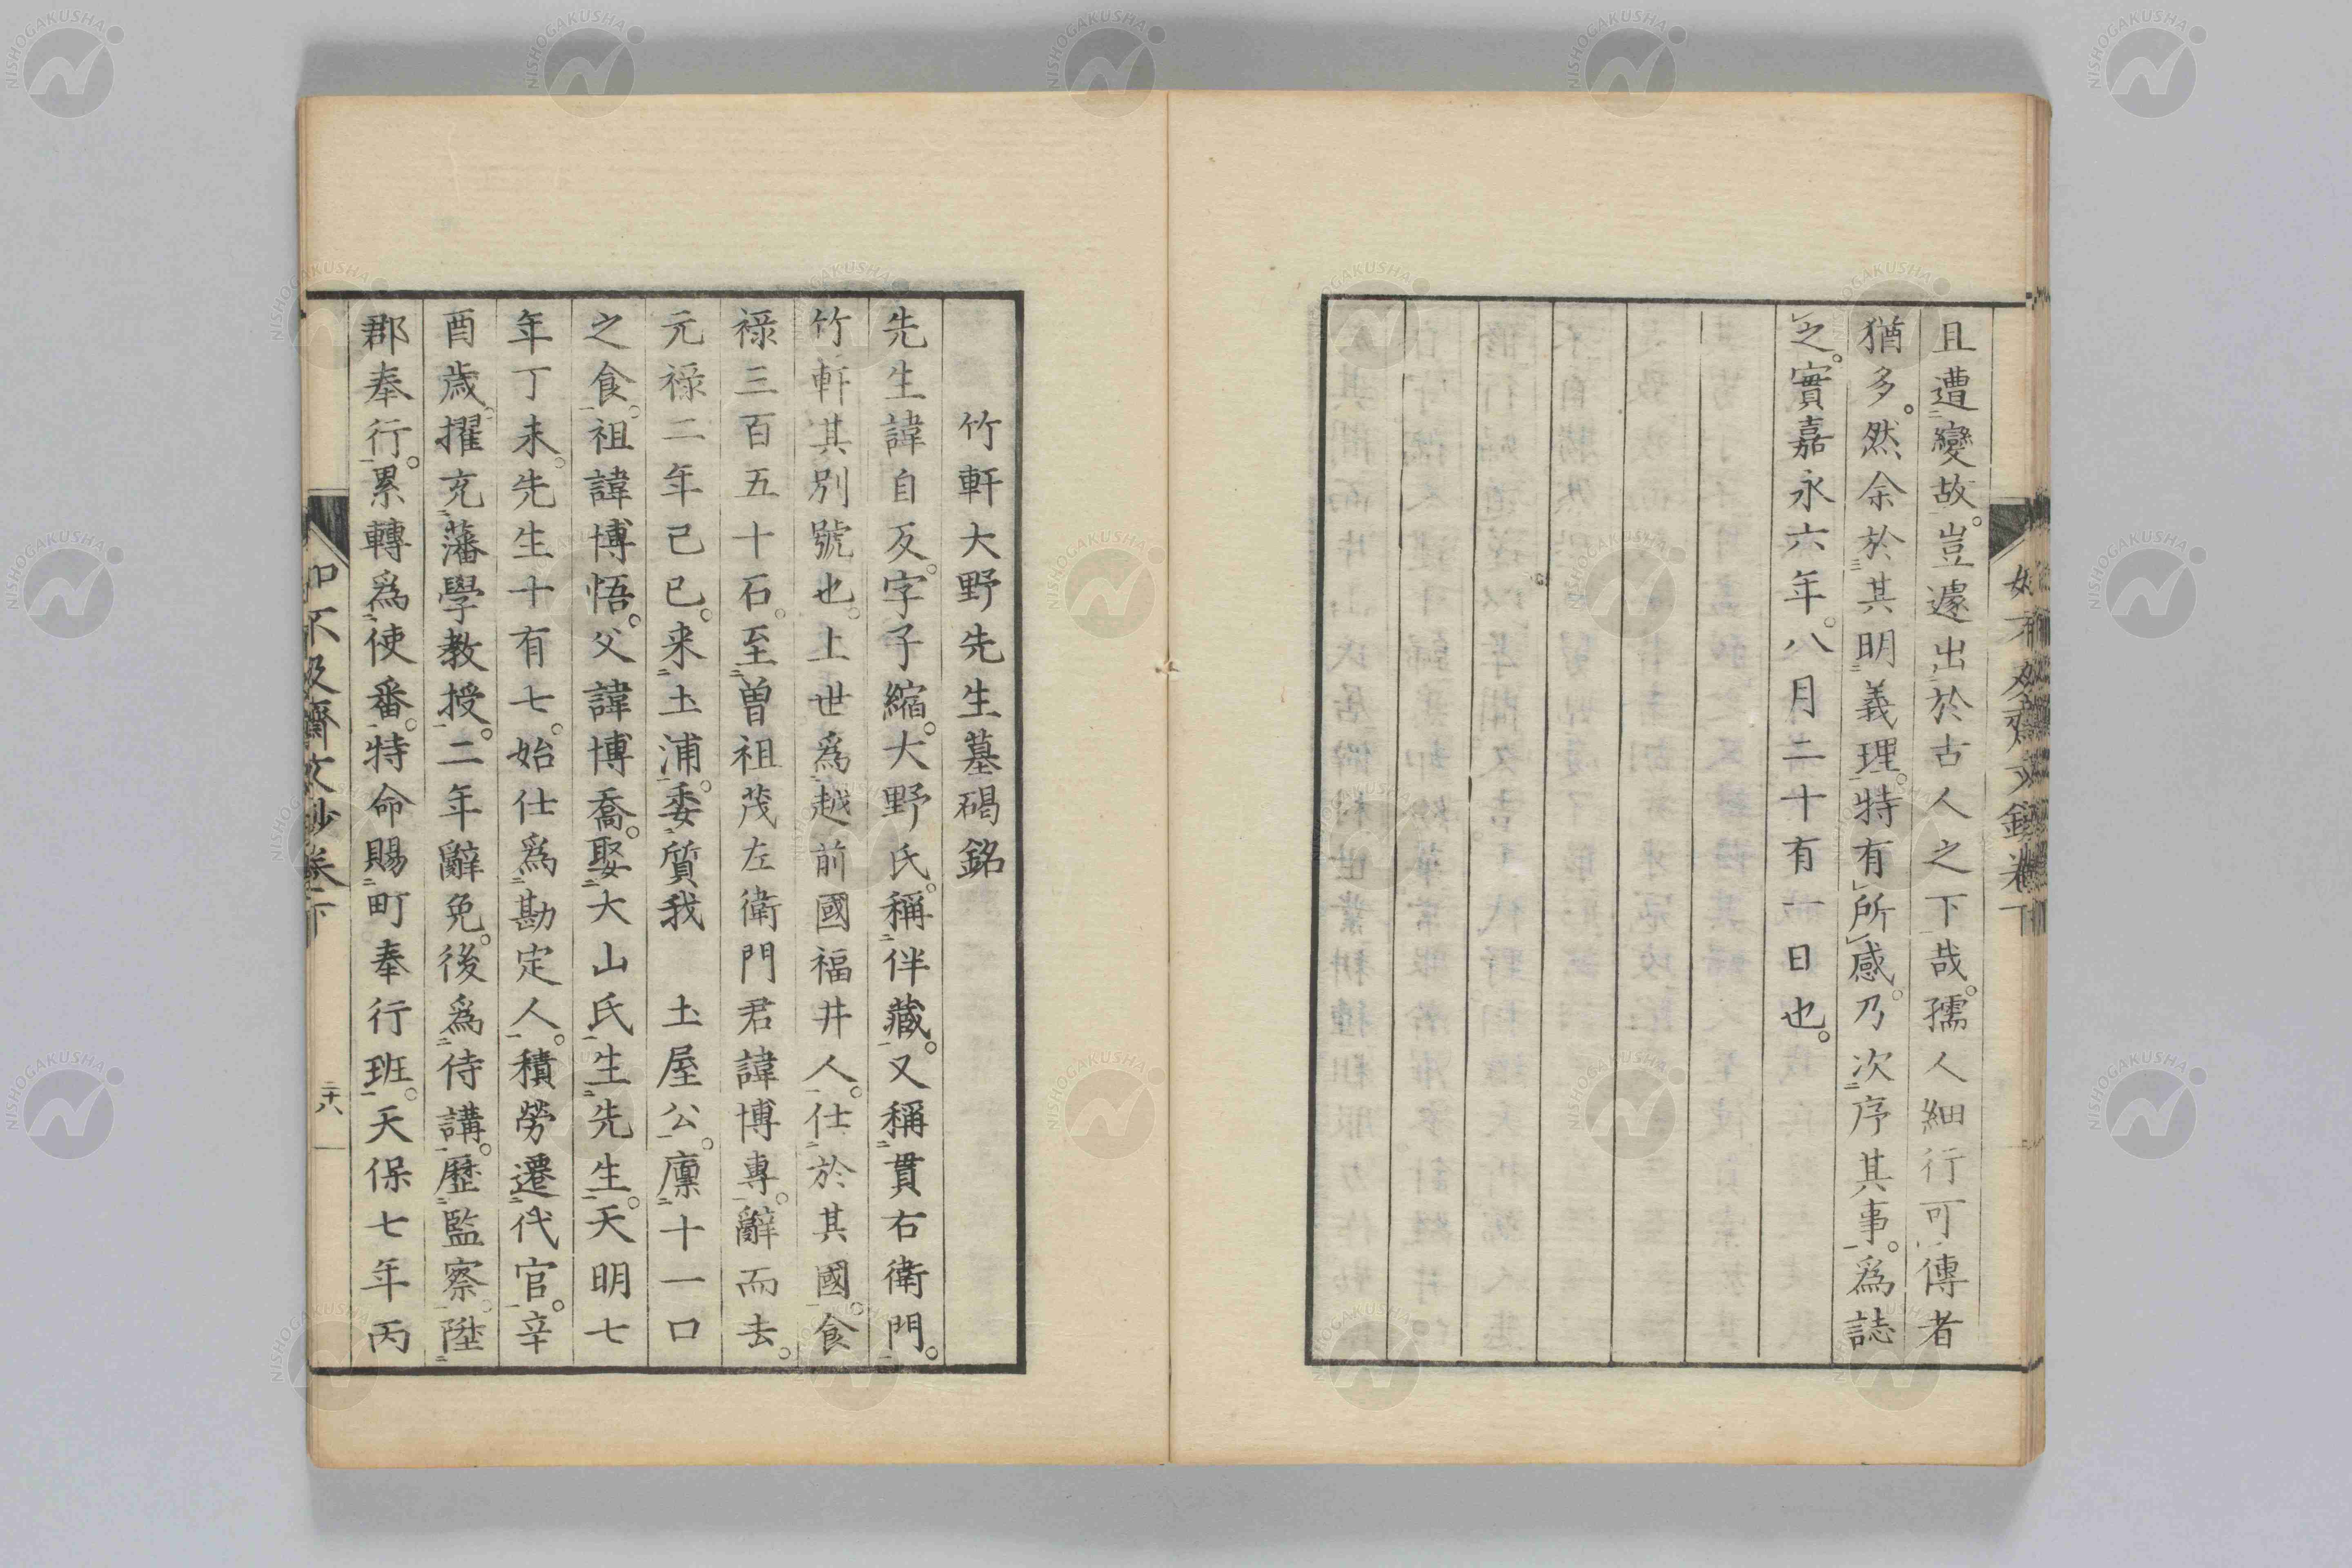 且遭變故。豈遽出於古人之下哉。孺人細行可傳者
猶多。然余於其明義理。特有所感。乃次序其事。爲誌
之。實嘉永六年。八月二十有一日也。
竹軒大野先生墓碣銘
先生諱自反。字子縮。大野氏。稱伴藏。又稱貫右衛門。
竹軒其別號也。上世爲越前國福井人。仕於其國。食
祿三百五十石。至曽祖茂左衛門君諱博專。辭而去。
元祿二年己巳。来土浦。委質我　土屋公。廩十一口
之食。祖諱博悟。父諱博喬。娶大山氏生先生。天明七
年丁未。先生十有七。始仕爲勘定人。積勞遷代官。辛
酉歳。擢充藩學教授。二年辭免。後爲侍講。歷監察。陞
郡奉行。累轉爲使番。特命賜町奉行班。天保七年丙
如不及齋文鈔卷下
二十八
NISHOGAKUSHA